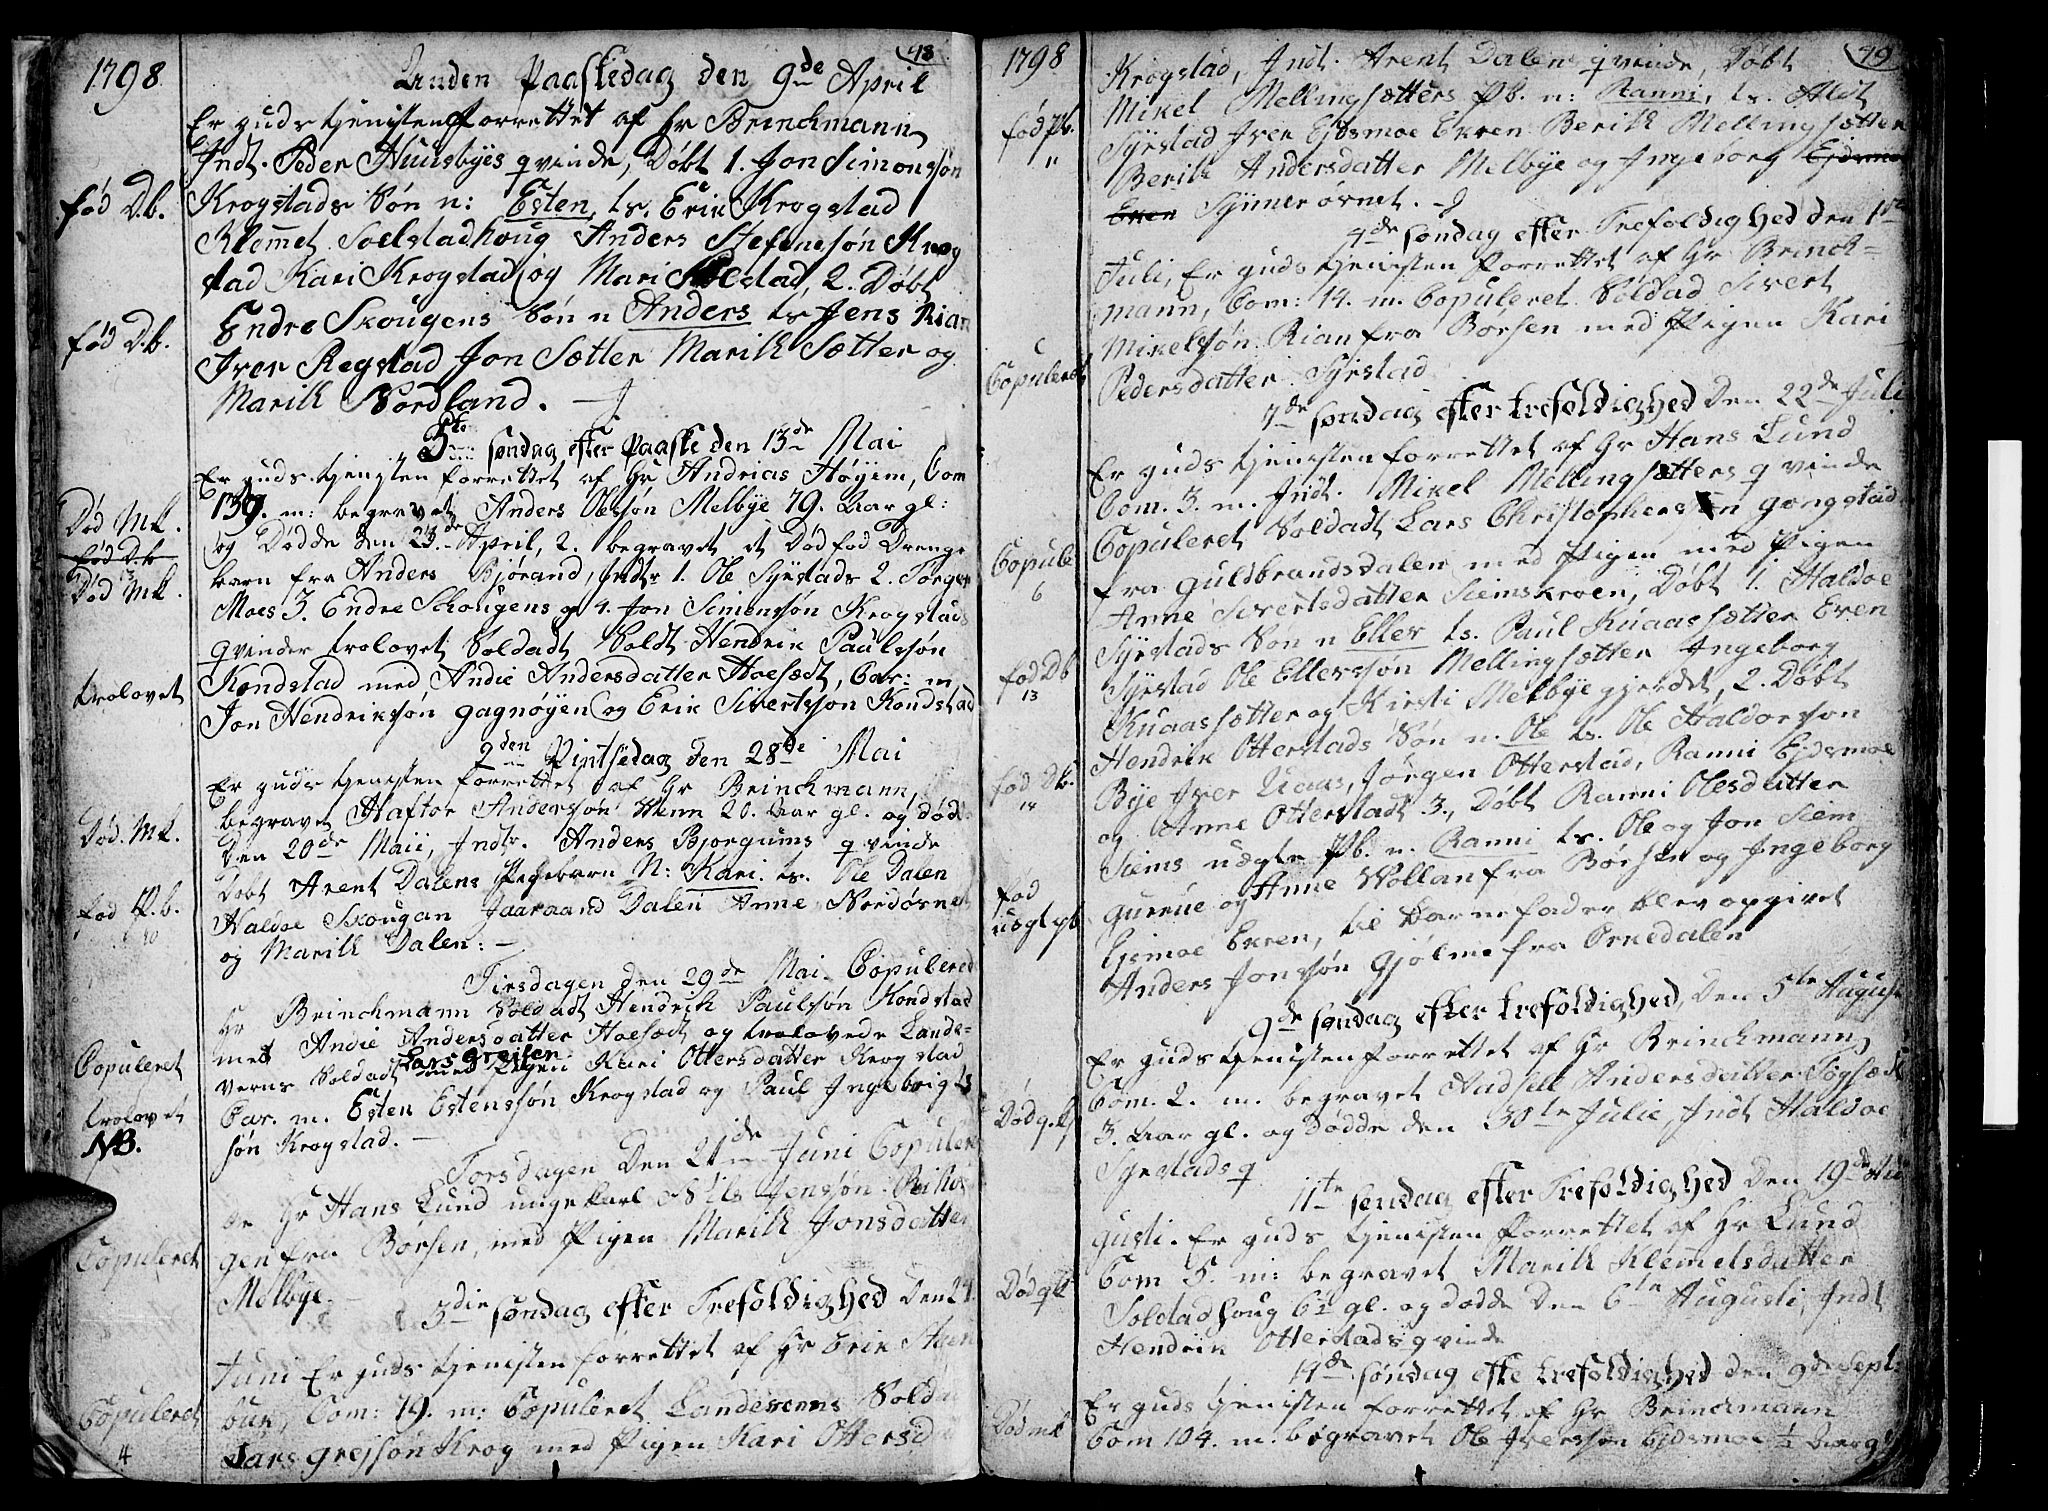 1798
48
Anden Paaskedag den 9de April
Er guds tjenisten forrettet af Hr Brinchmann
Indt. Peder Huusbyes qvinde, Døbt 1. Jon Simonssøn
fød D.b.
Krogstads Søn n: Esten, ts. Erik Krogstad
Klemmet Soelstadhoug Anders Stefenssøn Krog
stad Kari Krogstad og Mari Solstad, 2. Døbt
fød D.b.
Endre Skougens Søn n Anders ts Jens Rian
Iver Regstad Jon Sætter Marith Sætter og
Marith Nordland.
5te søndag efter Paaske den 13de Mai
Er guds tjenisten forrettet af Hr Andrias Høyem, Com
Død Mk.
139. m: begravet Anders Olssøn Melbye 79. Aar gl:
fød D.b
og Dødde den 23de April, 2. begravet et Dødfød Drenge
Død Mk.
barn fra Anders Bjørand, Indtr 1. Ole Syrstads 2. Jørgen
Moes 3. Endre Schougens og 4. Jon Simonssøn Krogstads
qvinder trolovet Soldadt Soldt Hendrik Paulssøn
trolovet
Kondstad med Andie Andersdatter Hoesædt, Car: m
Jon Hendrikssøn gagnøyen og Erik Sivertssøn Kondstad
2den Pintsedag den 28de Mai
Er guds tjenisten forrettet af Hr Brinchmann,
begravet Haftor Anderssøn Wenn 20. Aar gl. og død
Død. Mk.
den 20de Maii, Indtr. Anders Bjorgums qvinde
fød P.b.
10
Døbt Arent Dalens Pigebarn N: Kari. ts. Ole Dalen
Haldoe Skougan Jaaraand Dalen Anne Nordøsnet
og Marith Dalen:
Tirsdagen den 29de Mai Copulered
Hr Brinchmann Soldadt Hendrich Paulssøn Kondstad
Copuleret
met Andie Andersdatter Hoesædt og trolovede Lande-
verns Soldadt Lars Grejsen med Pigen Kari Ottersdatter Krogstad
trolovet
NB.
Car. m. Esten Estenssøn Krogstad og Paul Ingebrigts
søn Krogstad.
Torsdagen Den 21de Juni Copulere
de Hr Hans Lund ungekarl Nils Jenssøn
Copuleret
gen fra Børsen, med Pigen Marith Jonsdatter
Melbye.
3die søndag efter Trefoldighed Den 24.
Juni Er guds tjenisten forrettet af Hr Erik Steen
Copuleret
4
buk, Com: 79. m: Copuleret Landeverns Solda
Lars grejssøn Krog med Pigen Kari Ottersd
1798
49
Krogstad, Indt. Arent Dalens qvinde, Døbt
fød Pb.
"
Mikel Mellingsætters Pb. n: Ranni, ts. Aldt
Syrstad Iver Ejdsmoe Ekren Berith Mellingsætter
Berith Andersdatter Melbye og Ingeborg Ejdsmo
Ekren Synnerøsnet.
4de søndag efter Trefoldighed den 1ste
Juli, Er guds tjenisten forrettet af Hr Brinch-
mann, Com: 14. m. Copuleret Soldad Sivert
Copuleret
Mikelssøn Rian fra Børsen med Pigen Kari
Pedersdatter Syrstad
7de søndag efter trefoldighed Den 22de Juli
Er guds tjenisten forrettet af Hr Hans Lund
Com. 3. m. Indt. Mikel Mellingsætters qvinde
Copule
6
Copuleret Soldadt Lars Christophersen gongstad
fra guldbrandsdalen med Pigen med Pigen
Anne Sivertsdatter Siemskroen, Døbt 1. Haldoe
fød Db
13
Syrstads Søn n Eller ts. Paul Kuaassætter Even
Syrstad Ole Ellerssøn Mellingsætter Ingeborg
Kuaassætter og Kirsti Melbyegjerdet, 2. Døbt
Hendrik Otterstads Søn n. Ole ts. Ole Haldorssøn
fød Db.
"
Bye Iver Uaas, Jørgen Otterstad, Ranni Ejdsmoe
og Anne Otterstadt 3., Døbt Ranni Olesdatter
Siems uægte Pb. n. Ranni ts. Ole og Jon Siem
fød
uægt pb
gurrue og Anne Wollan fra Børsen og Ingeborg
Ejsmoe Ekren, til Barnefader blev opgivet
Anders Jonssøn gjølme fra Orkedalen
9de søndag efter trefoldighed, Den 5te August
Er guds tjenisten forrettet af Hr Brinchmann,
Com. 2. m. begravet Andersdatter
Død q.k
3. Aar gl. og Dødde den 30te Julie, Indt Haldoe
Syrstads q
11te søndag efter Trefoldighed Den 19de Au
gusti. Er guds tjenisten forrettet af Hr Lund
Com 5. m: begravet Marith Klemmetsdatter
Død qk
Solstadhoug 61 gl. og dødde Den 6te Augusti, Indt
Hendrik Otterstads qvinde
14de søndag efte trefoldighed den 9de Sept:
Er guds tjenisten forrettet af Hr Brinchmann
Død mk
Com 104. m. begravet Ole Iverssøn Ejdsmoe ½ Aar gl